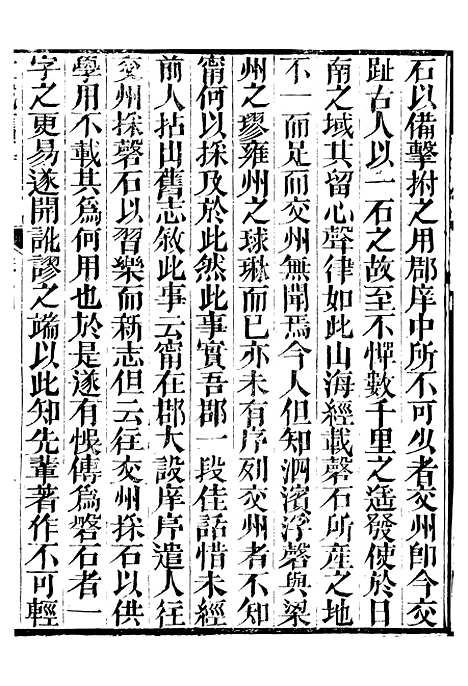 石以備擊拊之用郡庠中所不可少者交州卽今交
趾古人以一石之故至不憚數千里之遥發使於日
南之域其留心聲律如此山海經載磬石所產之地
不一而足而交州無聞焉今人但知泗濱浮磬與梁
州之璆雍州之球琳而已亦未有序列交州者不知
甯何以採及於此然此事實吾郡一段佳話惜未經
前人拈出舊志敘此事云甯在郡大設庠序遣人往
交州採磬石以習樂而新志但云往交州採石以供
學用不載其爲何用也於是遂有悞傳爲磐石者一
字之更易遂開訛謬之端以此知先輩著作不可輕